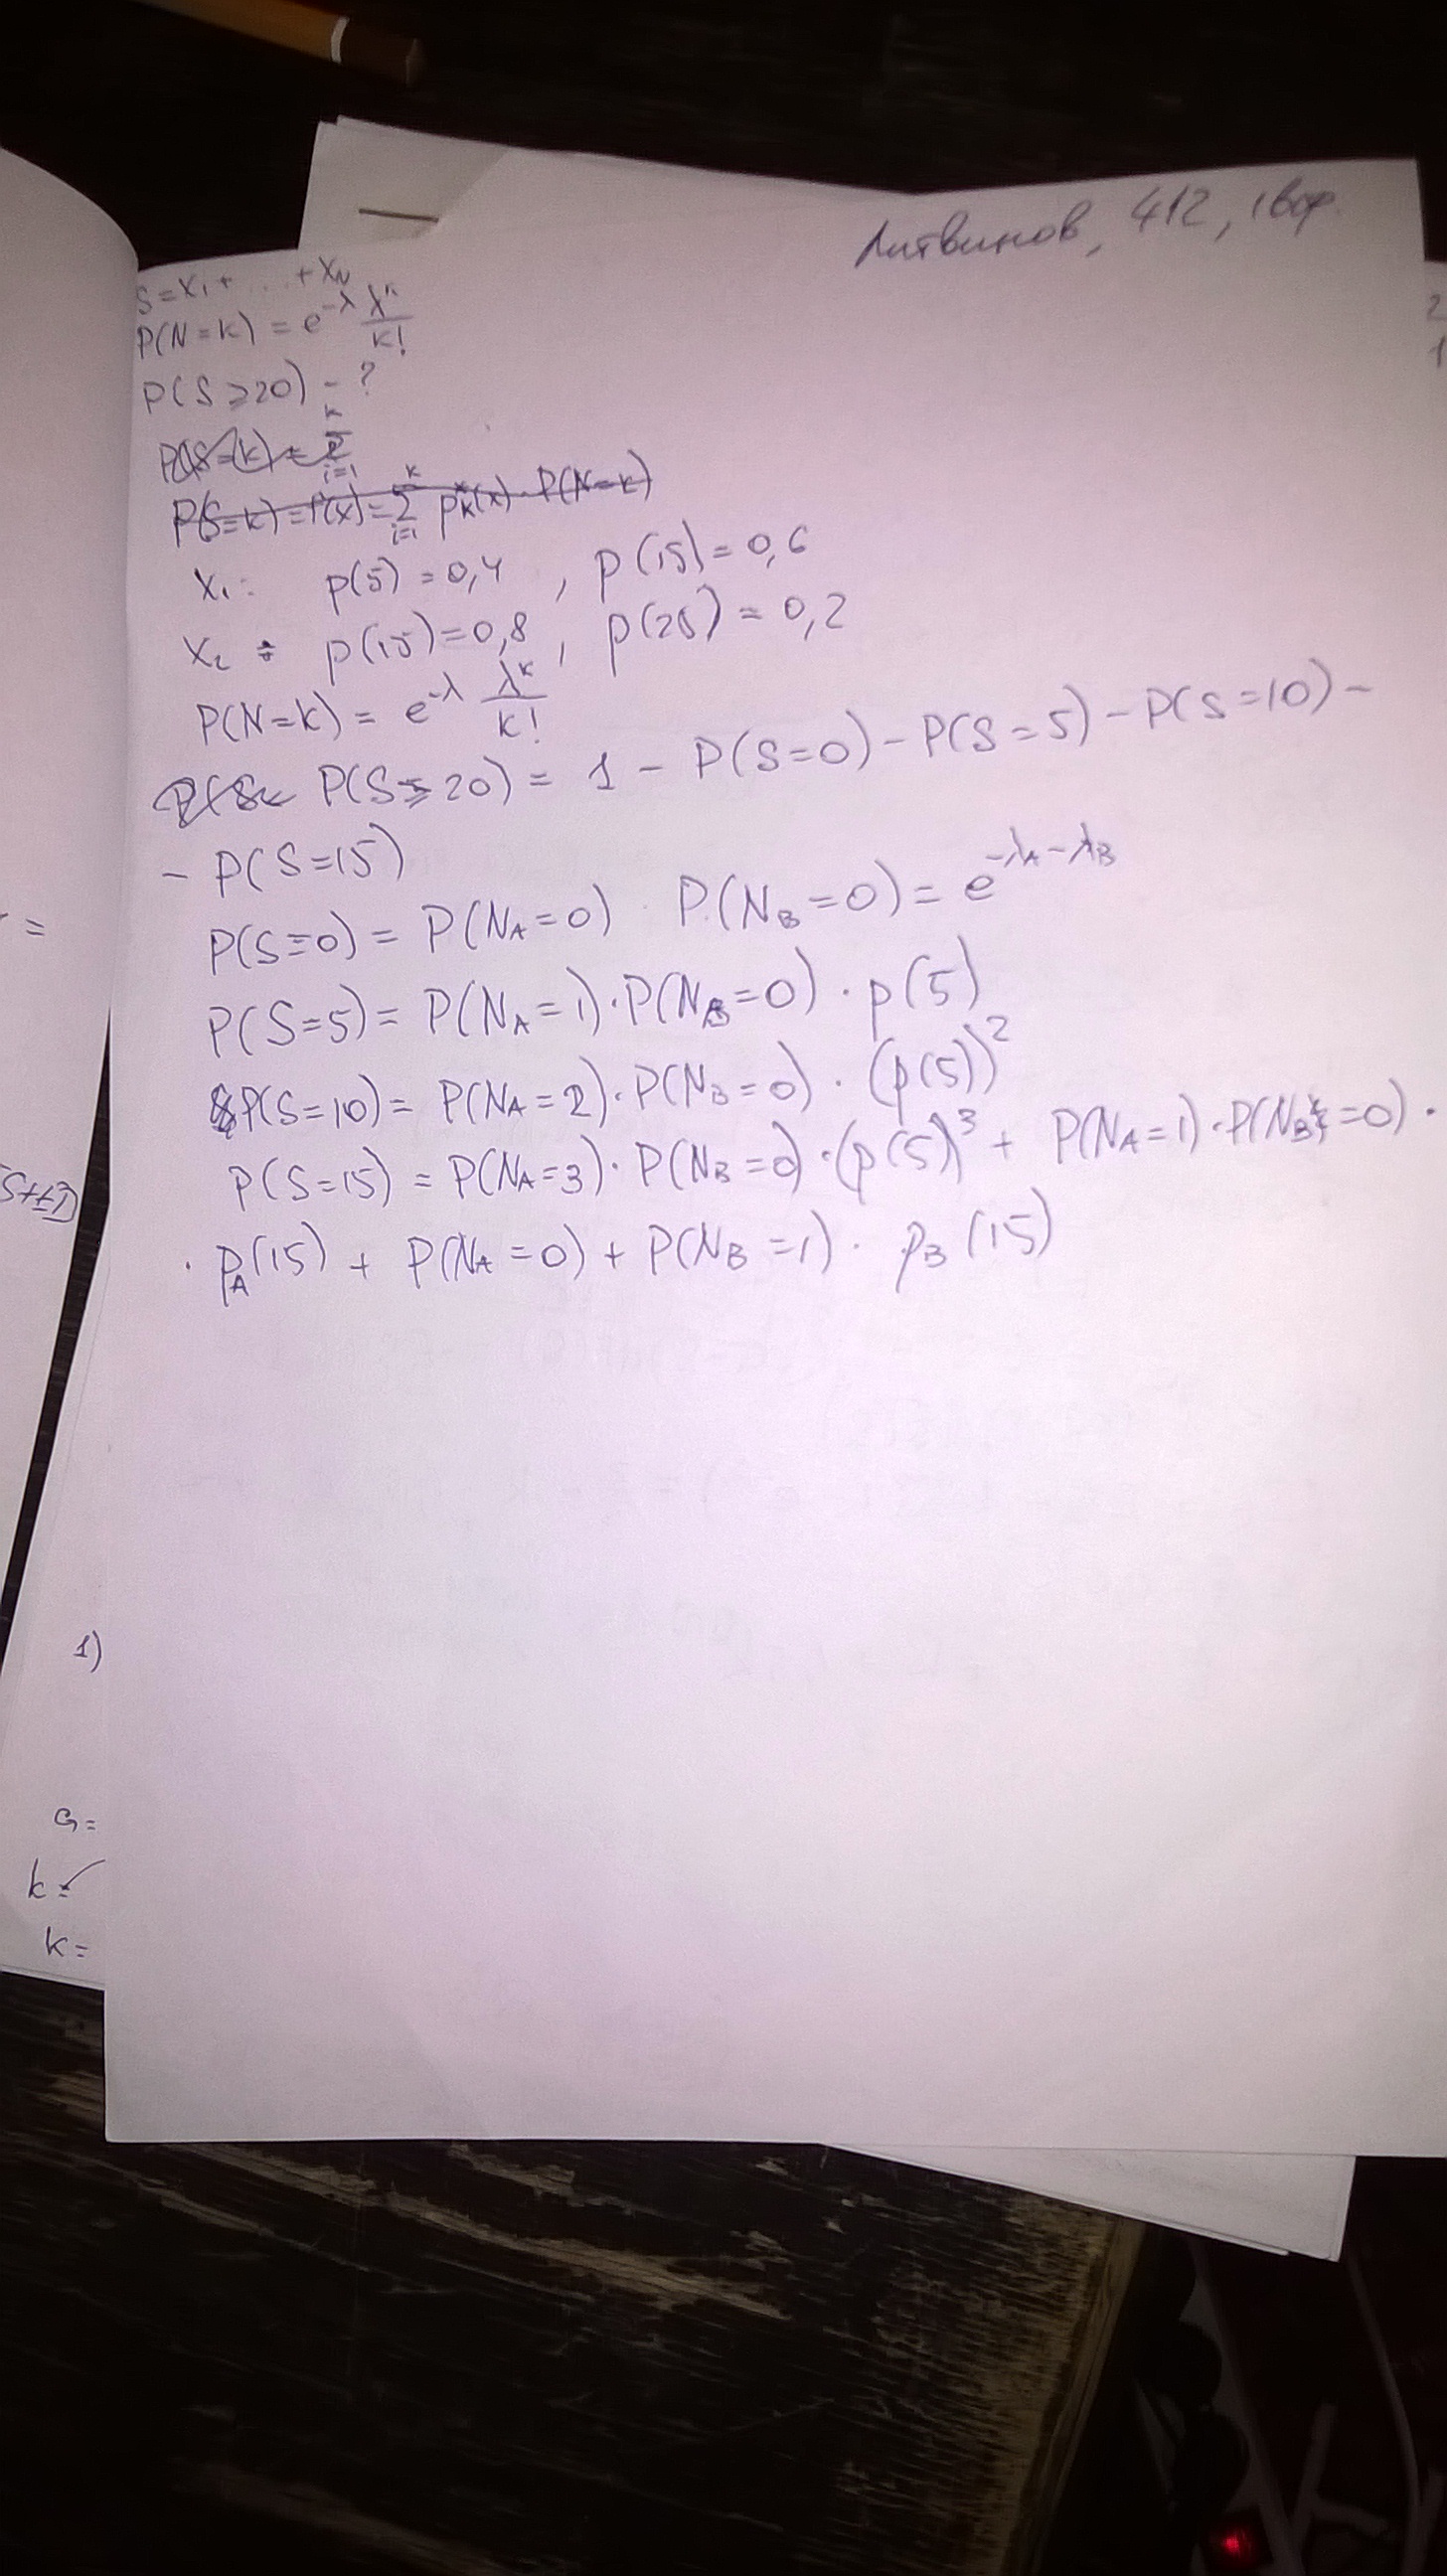 Литвинов, 412, 1 вар.
S = X₁ + ... + X_N
P(N=k) = e^{-λ} λ^k / k!
P(S ⩾ 20) - ?
P(S=k) = Σ_{i=1}^{k}
P(S=k) = P(x) = Σ_{i=1}^{k} p_k^*(x) · P(N=k)
X₁: p(5) = 0,4 , p(15) = 0,6
X₂ : p(15) = 0,8 , p(20) = 0,2
P(N=k) = e^{-λ} λ^k / k!
P(S ⩾ 20) = 1 - P(S=0) - P(S=5) - P(S=10) -
- P(S=15)
P(S=0) = P(N_A=0) · P(N_B=0) = e^{-λ_A-λ_B}
P(S=5) = P(N_A=1) · P(N_B=0) · p(5)
P(S=10) = P(N_A=2) · P(N_B=0) · (p(5))²
P(S=15) = P(N_A=3) · P(N_B=0) · (p(5))³ + P(N_A=1) · P(N_B=0) ·
· p_A(15) + P(N_A=0) + P(N_B=1) · p_B(15)
1)
G=
k=
k=